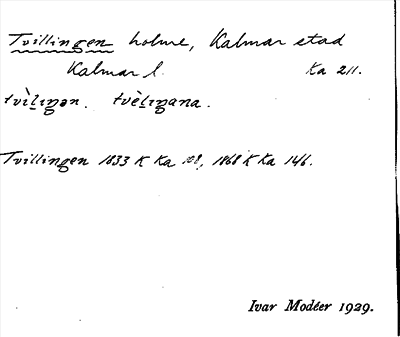 Tvillingen holme, Kalmar stad
Kalmar l. Ka 211.
tvìlıŋən. tvèlıŋana.
Tvillingen 1833 K Ka 108, 1868 K Ka 146.
Ivar Modéer 1929.